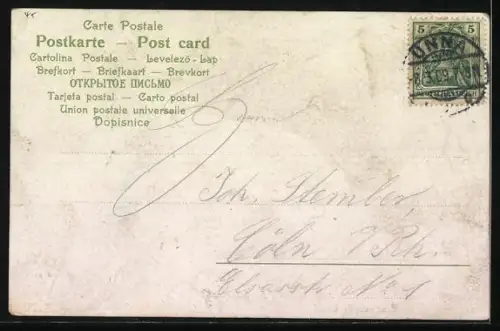 Carte Postale
Postkarte — Post card
Cartolina Postale — Levelező-Lap
Brefkort — Briefkaart — Brevkort
ОТКРЫТОЕ ПИСЬМО
Tarjeta postal — Carto postal
Union postale universelle
Dopisnice
5 5
UNNA
Joh. Stember,
Cöln a/Rh.
Elsasstr No 1